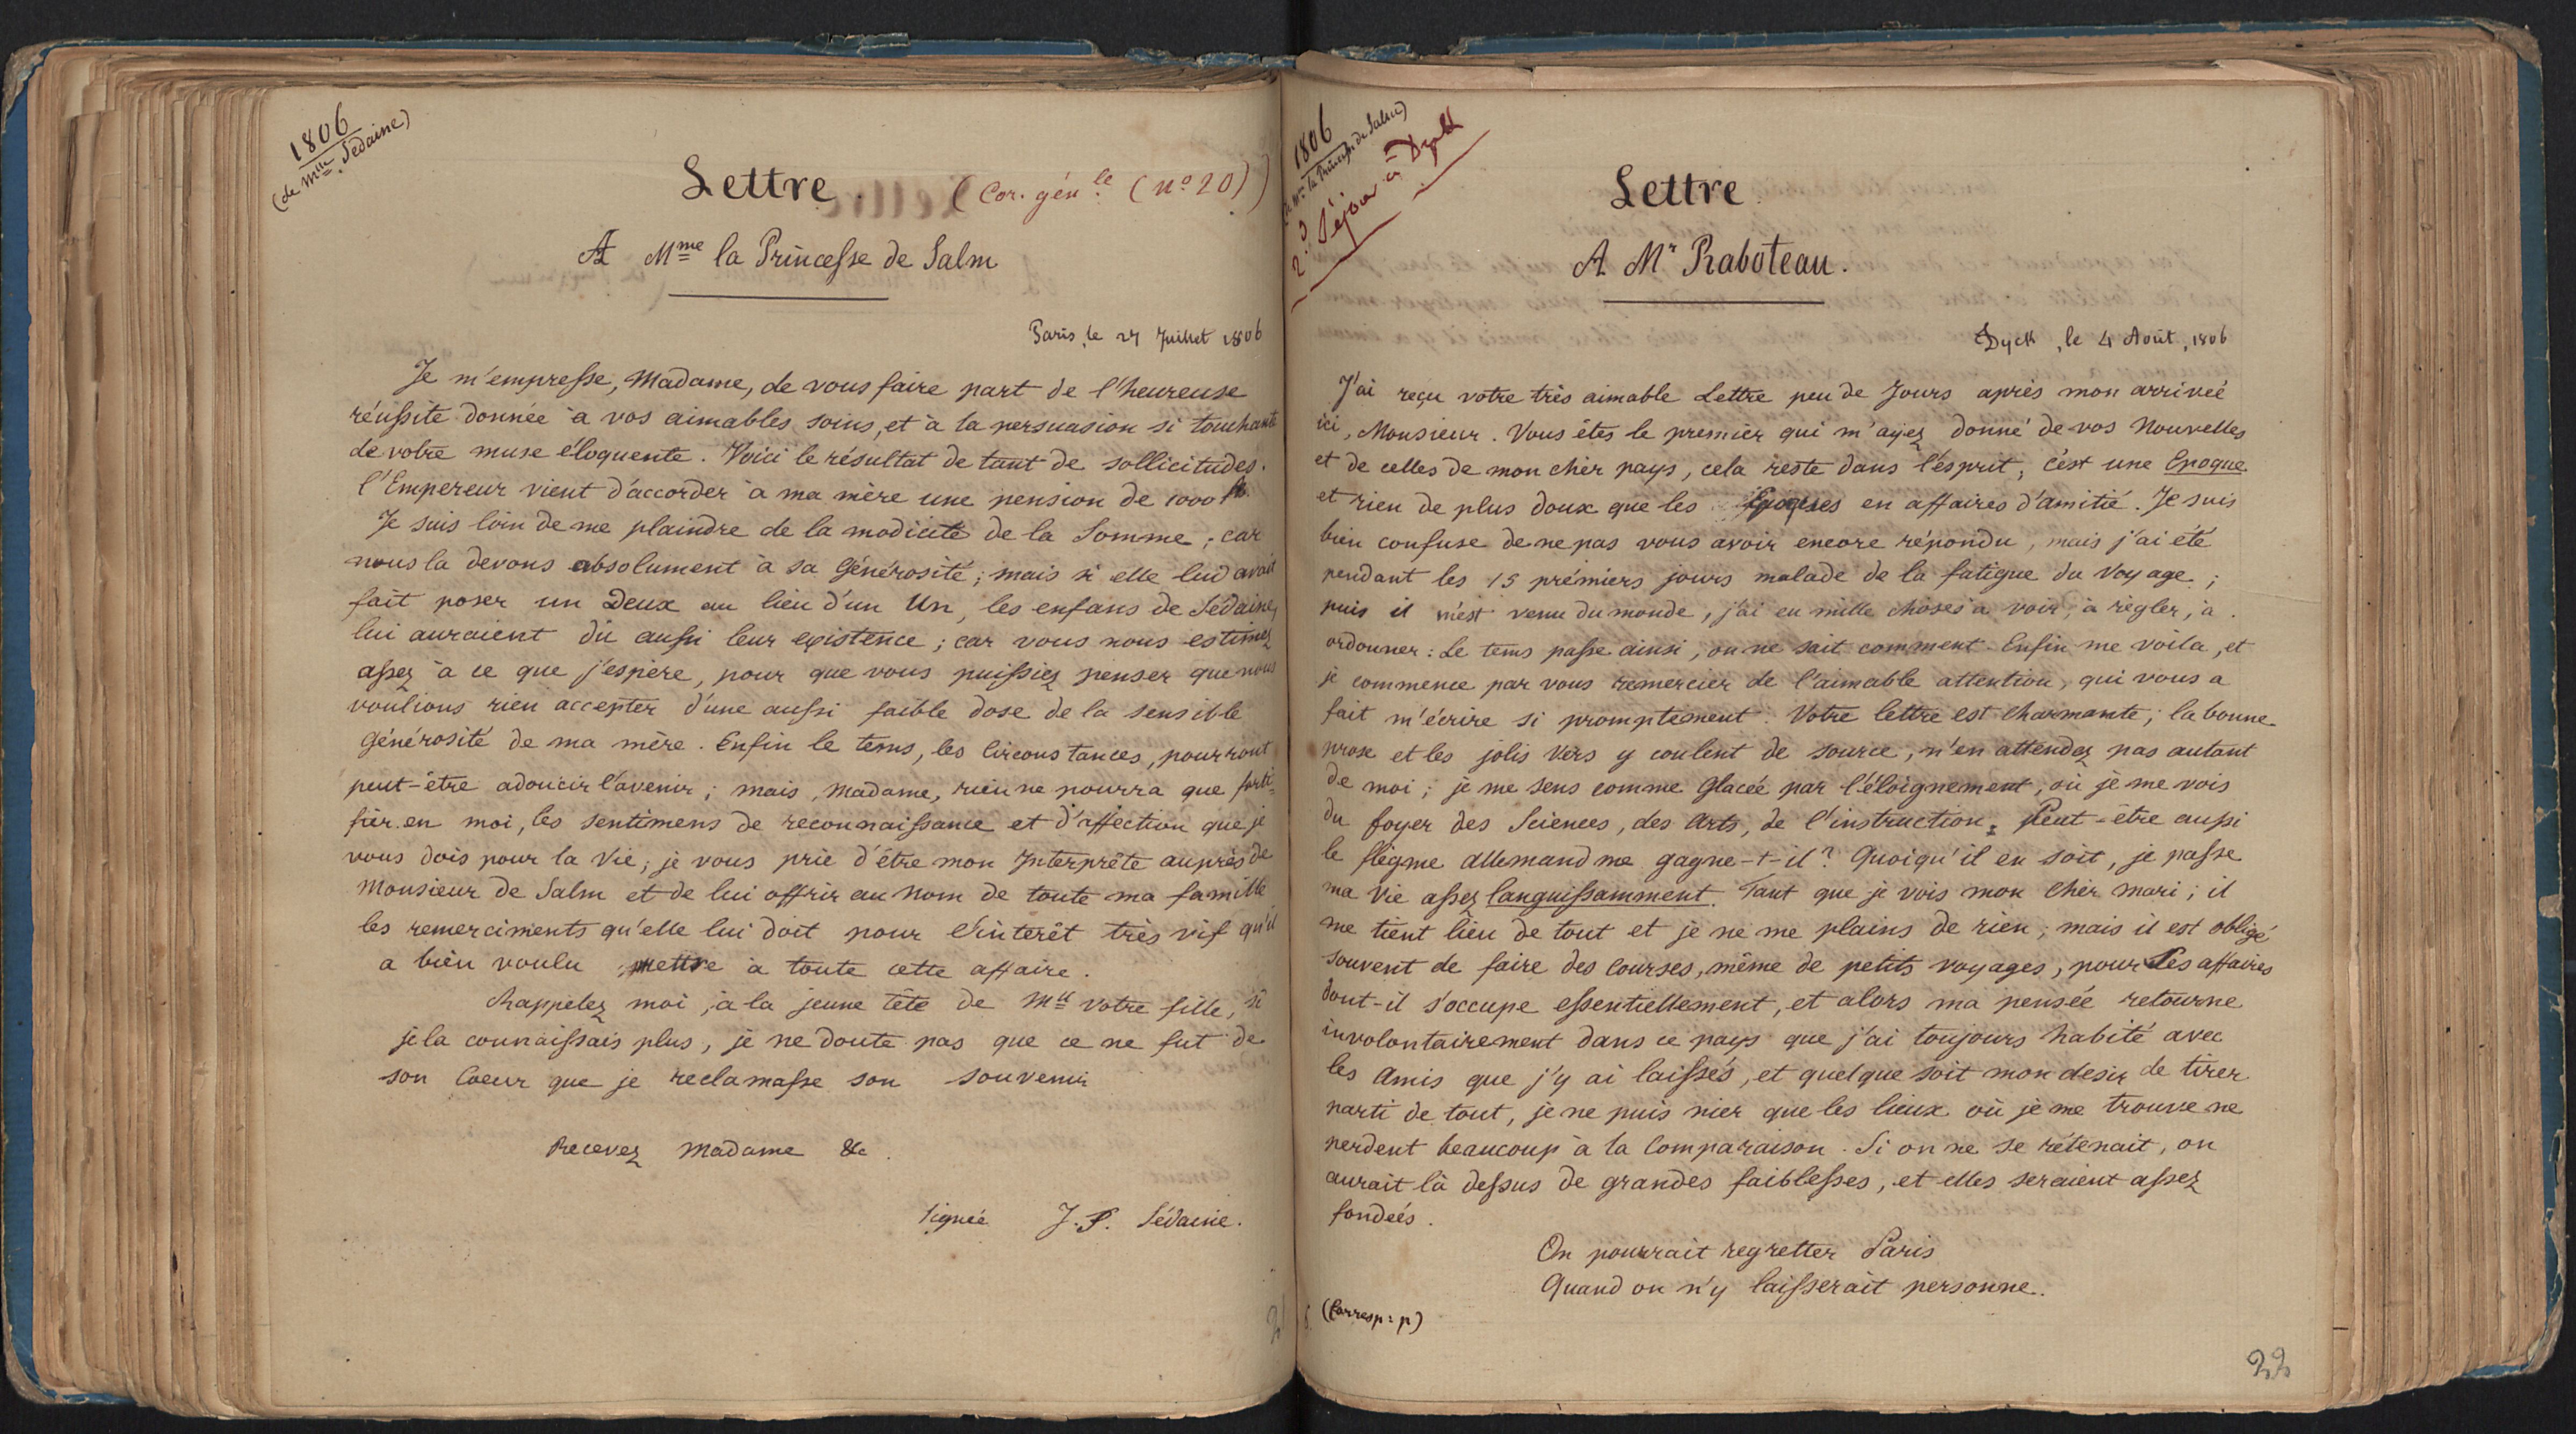 1806
(de Mme Sédaine)
Lettre. (Cor. génle (no 20))
A Mme la Princesse de Salm
Paris, le 27 Juillet 1806
Je m'empresse, Madame, de vous faire part de l'heureuse
réussite donnée à vos aimables soins, et à la persuasion si touchante
de votre muse éloquente. Voici le résultat de tant de sollicitudes.
l'Empereur vient d'accorder à ma mère une pension de 1000 fr.
Je suis loin de me plaindre de la modicité de la Somme ; car
nous la devons absolument à sa Générosité ; mais si elle lui avait
fait poser un Deux au lieu d'un Un, les enfans de Sédaine,
lui auraient dû aussi leur existence ; car vous nous estimez
assez à ce que j'espère, pour que vous puissiez penser que nous
voulions rien accepter d'une aussi faible dose de la sensible
Générosité de ma mère. Enfin le tems, les Circonstances, pourront
peut-être adoucir l'avenir ; mais, Madame, rien ne pourra que forti-
fier en moi, les sentimens de reconnaissance et d'affection que je
vous dois pour la Vie, je vous prie d'être mon Interprête auprès de
Monsieur de Salm et de lui offrir au Nom de toute ma famille
les remerciments qu'elle lui doit pour l'intérêt très vif qu'il
a bien voulu mettre à toute cette affaire.
Rappelez moi, à la jeune tête de Mlle votre fille, si
je la connaissais plus, je ne doute pas que ce ne fut de
son Coeur que je reclamasse son souvenir
Recevez Madame &c.
Signée J. S. Sédaine.
1806
(de Me la Princesse de Salm)
2e Séjour à Dyck
Lettre
A Mr Raboteau.
Dyck, le 4 Août, 1806
J'ai reçu votre très aimable Lettre peu de Jours après mon arriveé
ici, Monsieur. Vous êtes le premier qui m'ayez donné de vos Nouvelles
et de celles de mon cher pays, cela reste dans l'esprit, c'est une Epoque
et rien de plus doux que les Epoques en affaires d'amitié. Je suis
bien confuse de ne pas vous avoir encore répondu, mais j'ai été
pendant les 15 prémiers jours malade de la fatigue du Voyage ;
puis il m'est venu du monde, j'ai eu mille choses à voir, à règler, à
ordonner : Le tems passe ainsi, on ne sait comment. Enfin me voila, et
je commence par vous remercier de l'aimable attention, qui vous a
fait m'écrire si promptement. Votre lettre est Charmante ; la bonne
prose et les jolis Vers y coulent de source, n'en attendez pas autant
de moi ; je me sens comme Glaceé par l'éloignement, où je me vois
du foyer des Sciences, des Arts, de l'instruction. Peut-être aussi
le flègme allemand me gagne-t-il ? Quoiqu'il en soit, je passe
ma Vie assez languissamment. Tant que je vois mon Cher mari ; il
me tient lieu de tout et je ne me plains de rien ; mais il est obligé
souvent de faire des Courses, même de petits voyages, pour les affaires
dont-il s'occupe essentiellement, et alors ma pensée retourne
involontairement dans ce pays que j'ai toujours habité avec
les Amis que j'y ai laissés, et quelque soit mon desir de tirer
parti de tout, je ne puis nier que les lieux où je me trouve ne
perdent beaucoup à la Comparaison. Si on ne se rétenait, on
aurait là dessus de grandes faiblesses, et elles seraient assez
fondeés.
On pourrait regretter Paris
Quand on n'y laisserait personne.
(Corresp: p)
22